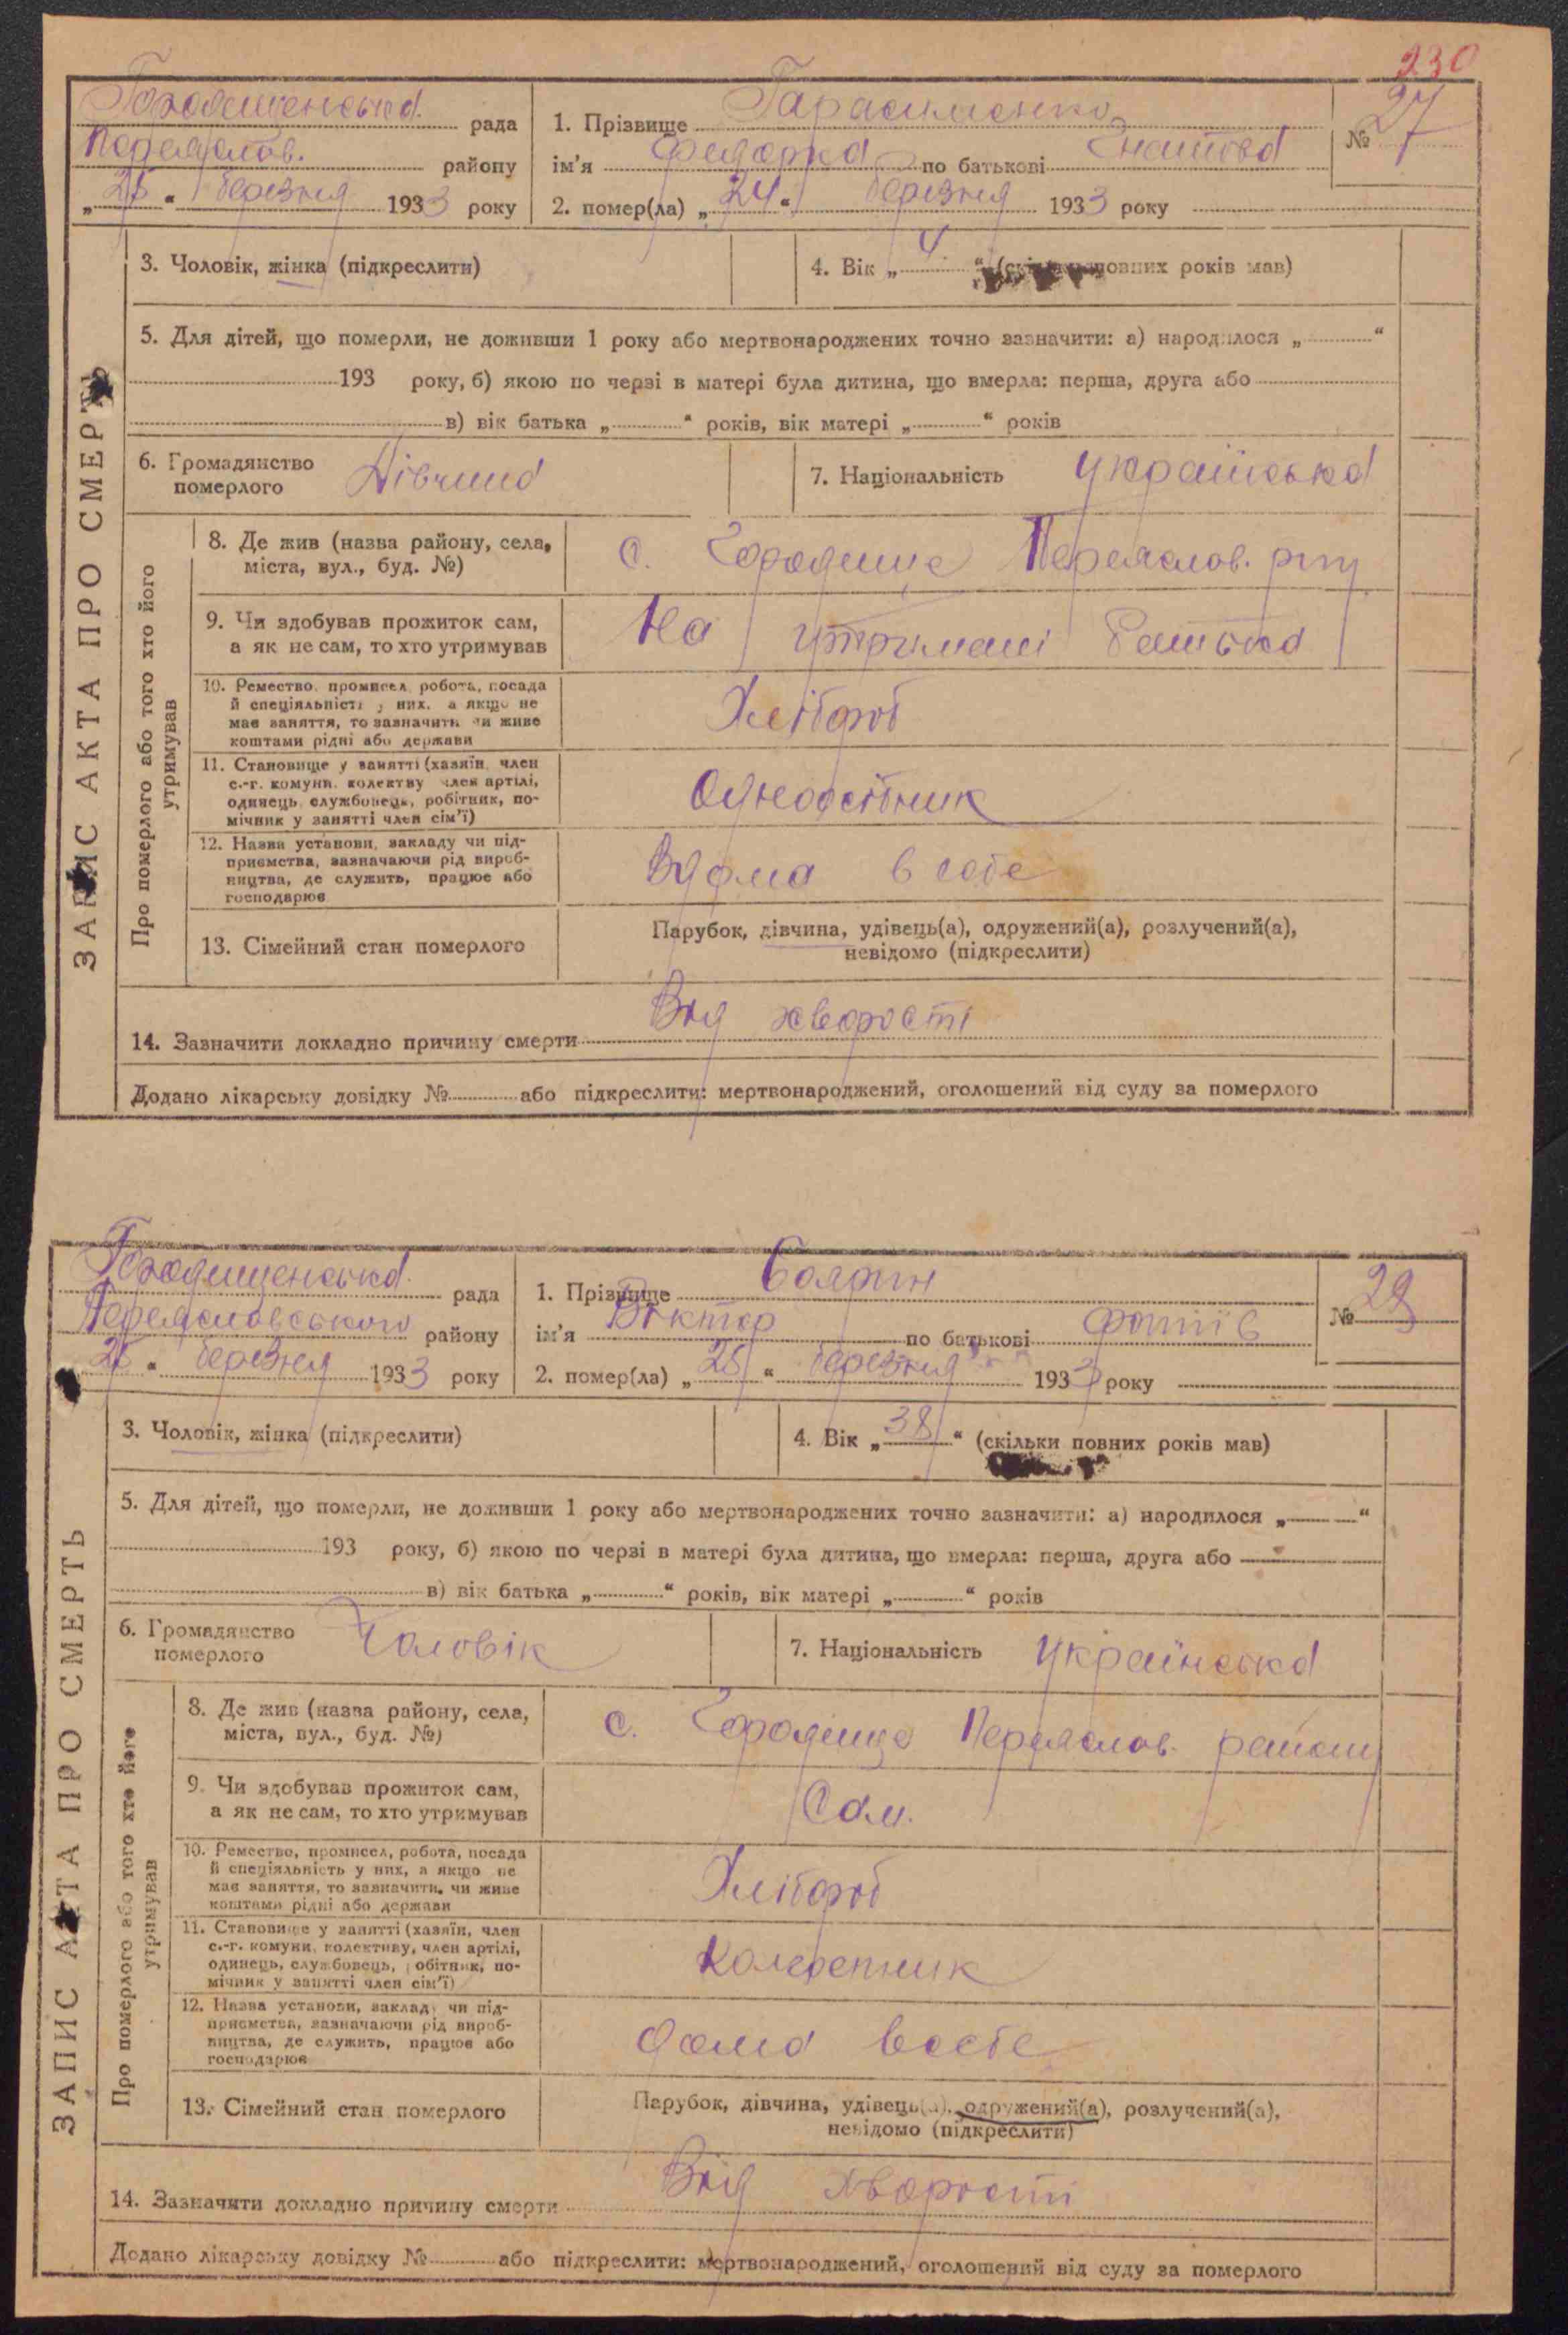 230
Городищенська рада
Переяслов. району
„25“ березня 1933 року
1. Прізвище Гарасименко
ім'я Федорка по батькові Гнатова
2. помер(ла) „24“ березня 1933 року
№ 27
ЗАПИС АКТА ПРО СМЕРТЬ
3. Чоловік, жінка (підкреслити)
4. Вік „4“ (скільки повних років мав)
5. Для дітей, що померли, не доживши 1 року або мертвонароджених точно зазначити: а) народилося „ “
193 року, б) якою по черзі в матері була дитина, що вмерла: перша, друга або
в) вік батька „ “ років, вік матері „ “ років
6. Громадянство померлого Дівчина
7. Національність українська
Про померлого або того хто його утримував
8. Де жив (назва району, села,
міста, вул., буд. №)
с. Городище Переяслов. р-ну
9. Чи здобував прожиток сам,
а як не сам, то хто утримував
На утримані батька
10. Ремество, промисел, робота, посада
й спеціяльність у них, а якщо не
має заняття, то зазначити чи живе
коштами рідні або держави
Хлібороб
11. Становище у занятті (хазяїн, член
с.-г. комуни, колективу член артілі,
одинець, службовець, робітник, по-
мічник у занятті член сім'ї)
Одноосібник
12. Назва установи, закладу чи під-
приємства, зазначаючи рід вироб-
ництва, де служить, працює або
господарює
Вдома в себе
13. Сімейний стан померлого
Парубок, дівчина, удівець(а), одружений(а), розлучений(а),
невідомо (підкреслити)
14. Зазначити докладно причину смерти Від хворості
Додано лікарську довідку № або підкреслити: мертвонароджений, оголошений від суду за померлого
Городищенська рада
Переяславського району
„25“ березня 1933 року
1. Прізвище Боярин
ім'я Віктор по батькові Фотіїв
2. помер(ла) „25“ березня 1933 року
№ 28
ЗАПИС АКТА ПРО СМЕРТЬ
3. Чоловік, жінка (підкреслити)
4. Вік „38“ (скільки повних років мав)
5. Для дітей, що померли, не доживши 1 року або мертвонароджених точно зазначити: а) народилося „ “
193 року, б) якою по черзі в матері була дитина, що вмерла: перша, друга або
в) вік батька „ “ років, вік матері „ “ років
6. Громадянство померлого Чоловік
7. Національність українська
Про померлого або того хто його утримував
8. Де жив (назва району, села,
міста, вул., буд. №)
с. Городище Переяслов. району
9. Чи здобував прожиток сам,
а як не сам, то хто утримував
Сам.
10. Ремество, промисел, робота, посада
й спеціяльність у них, а якщо не
має заняття, то зазначити, чи живе
коштами рідні або держави
Хлібороб
11. Становище у занятті (хазяїн, член
с.-г. комуни, колективу, член артілі,
одинець, службовець, робітник, по-
мічник у занятті член сім'ї)
Колгоспник
12. Назва установи, закладу чи під-
приємства, зазначаючи рід вироб-
ництва, де служить, працює або
господарює
дома в себе
13. Сімейний стан померлого
Парубок, дівчина, удівець(а), одружений(а), розлучений(а),
невідомо (підкреслити)
14. Зазначити докладно причину смерти Від хворости
Додано лікарську довідку № або підкреслити: мертвонароджений, оголошений від суду за померлого